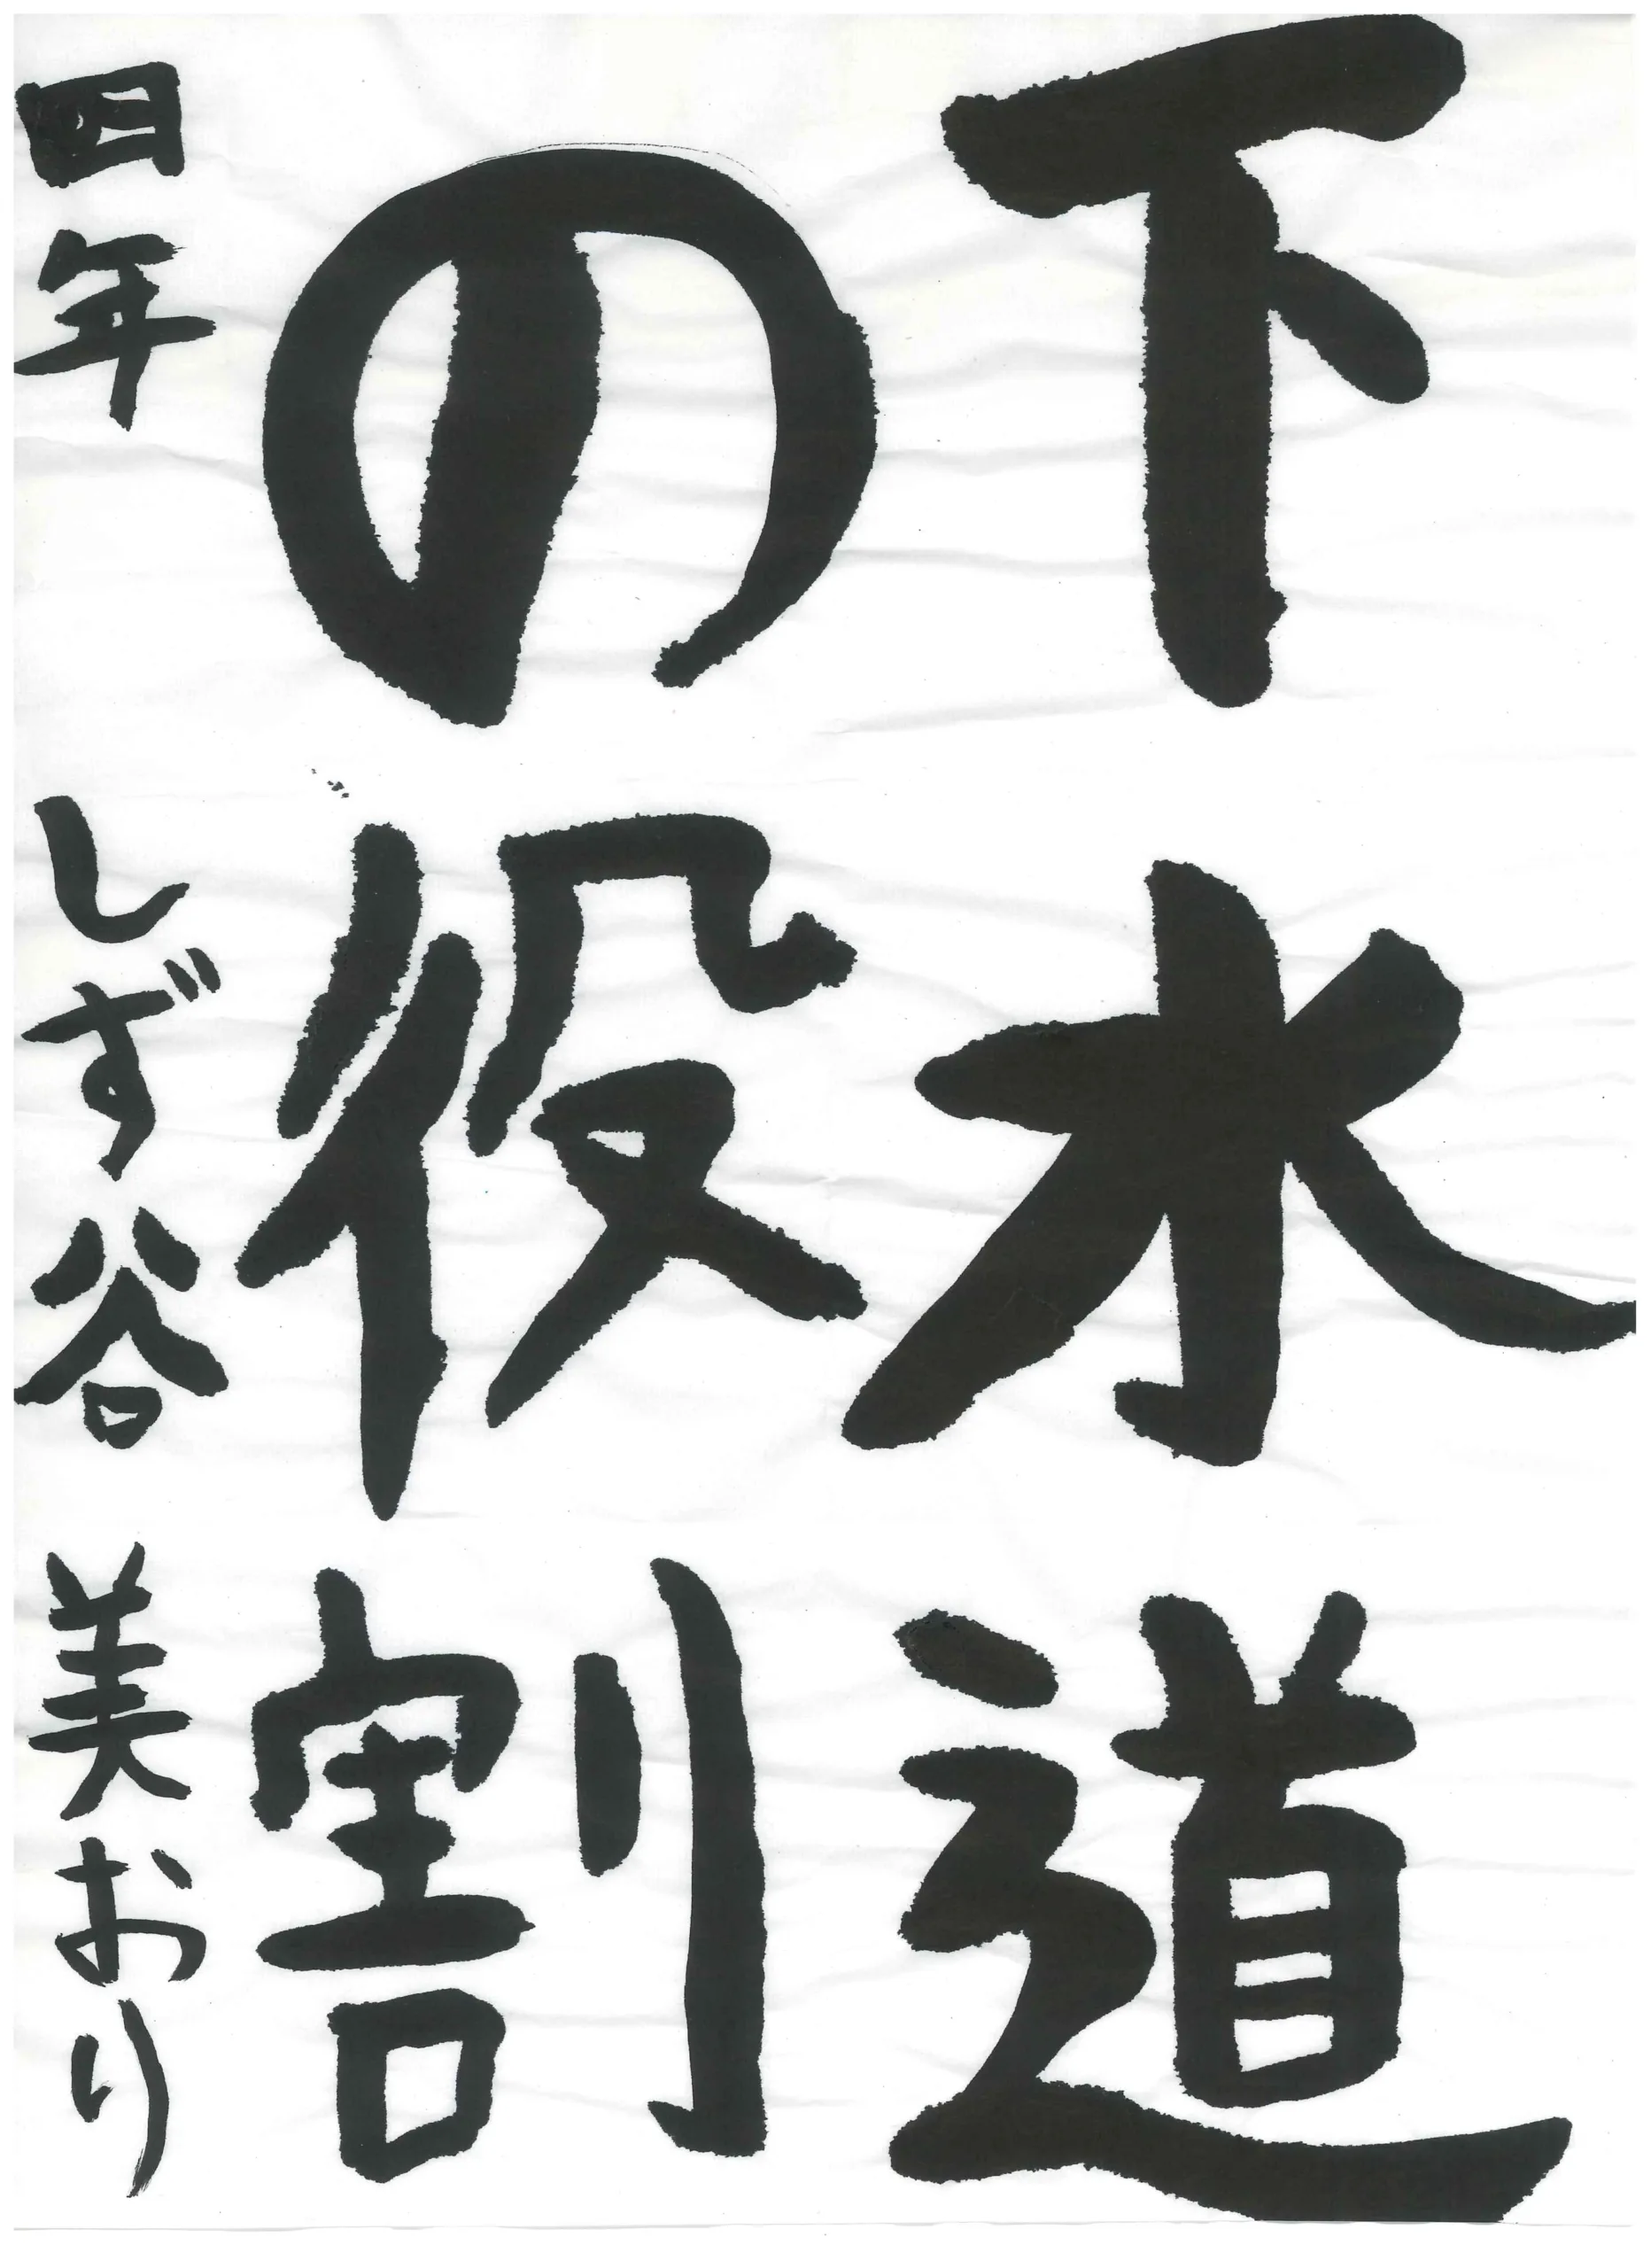 下水道
の役割
四年 しず谷 美おり